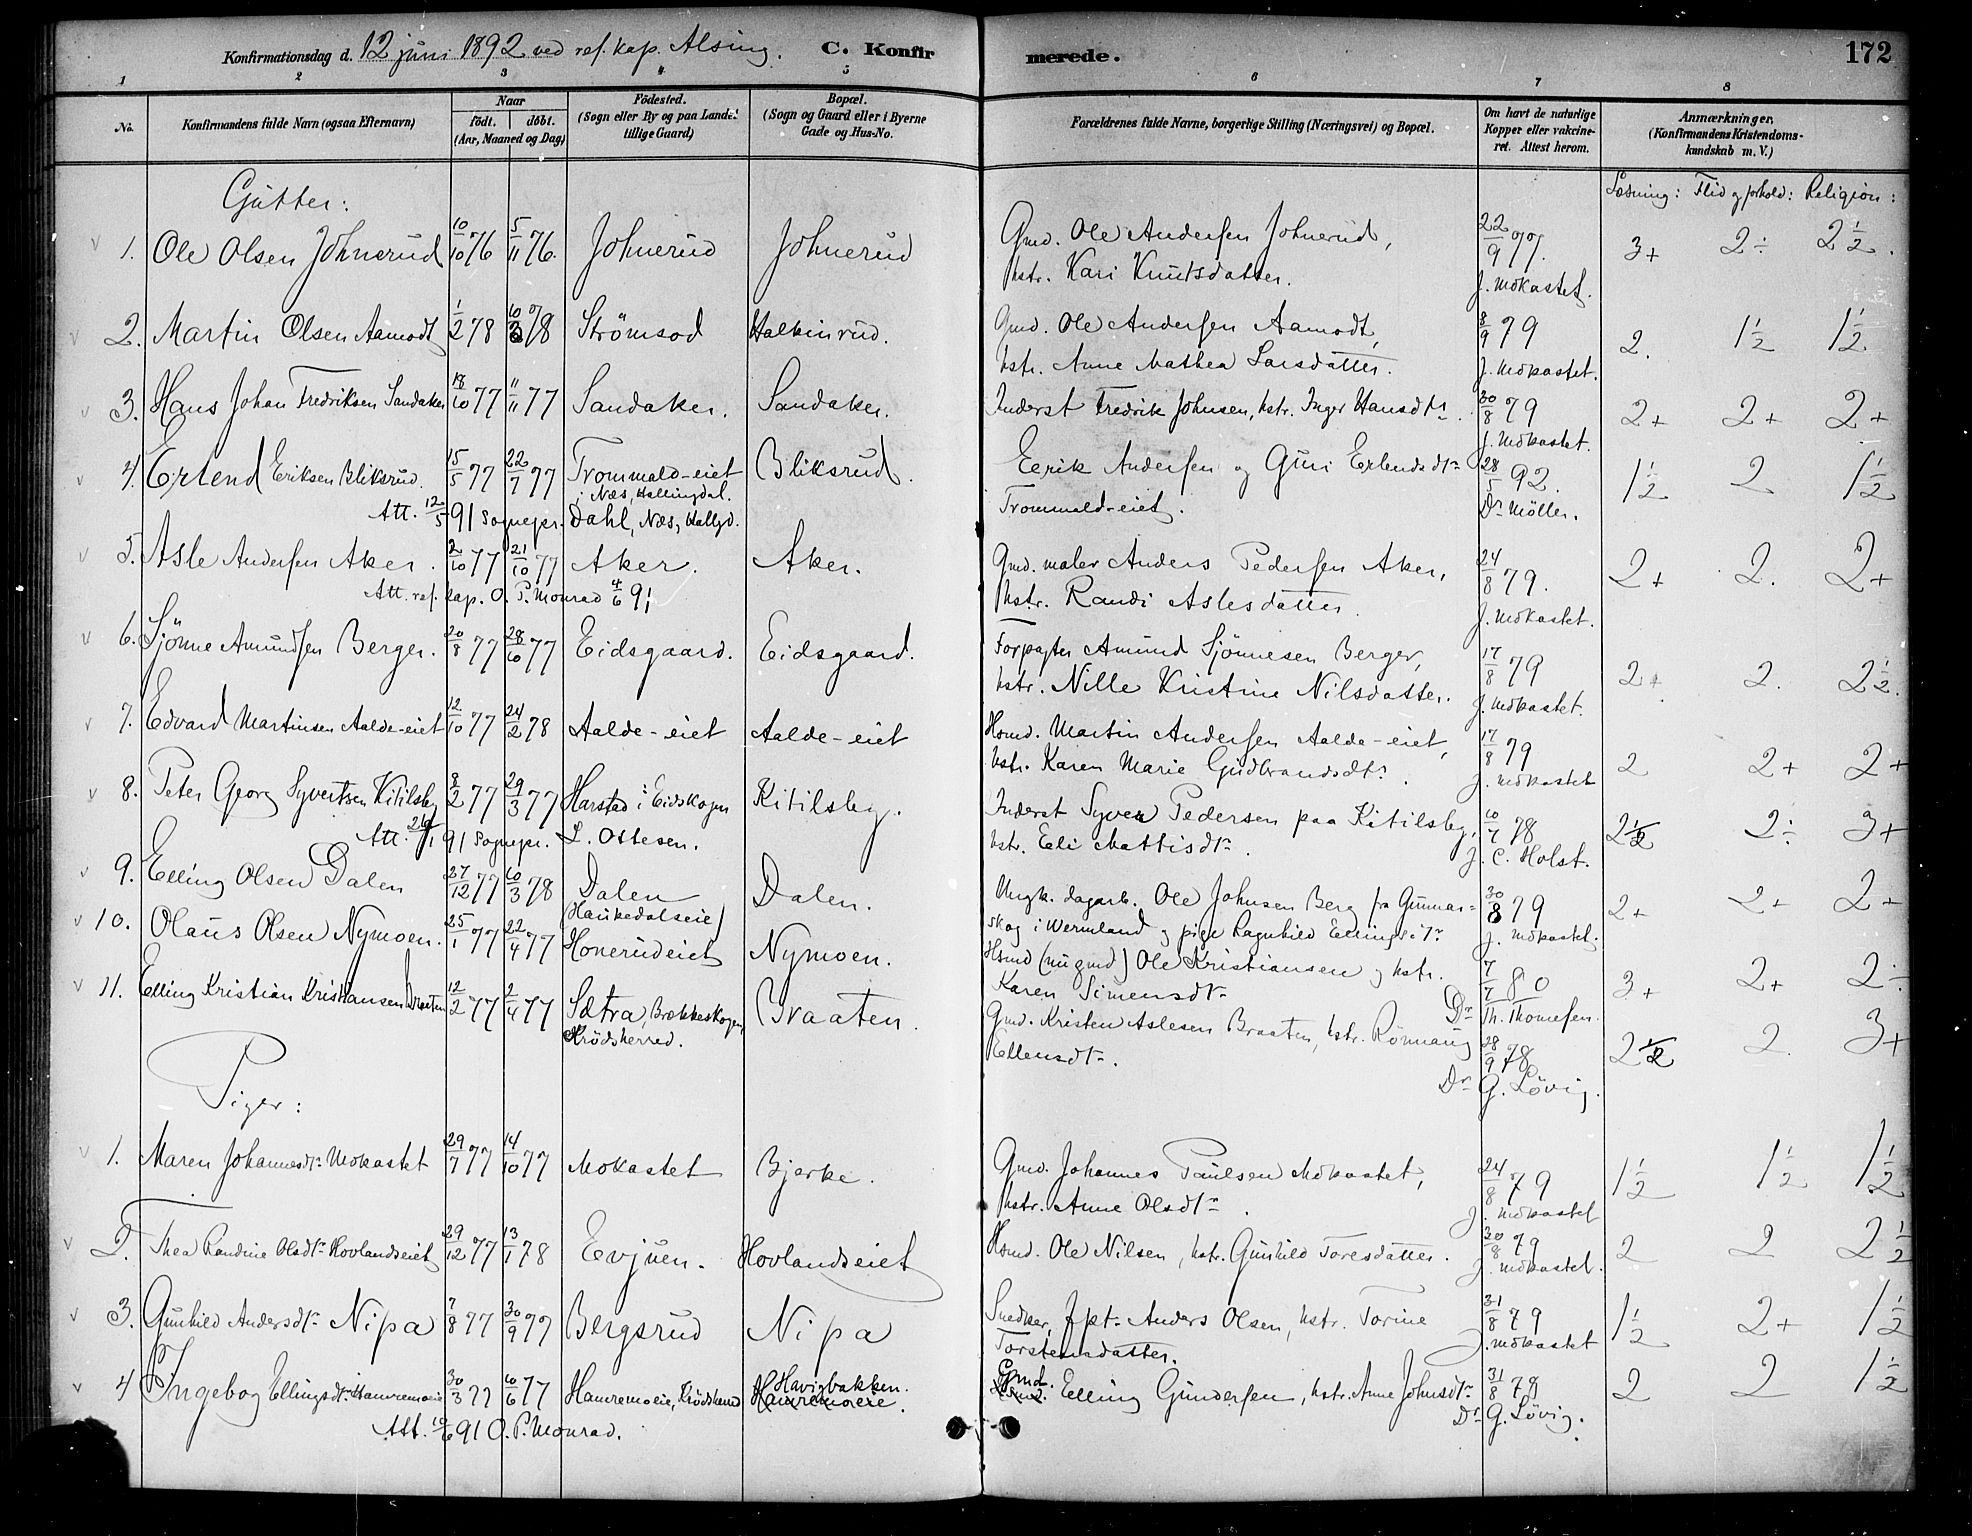 Konfirmationsdag d. 12 juni 1892 ved res. kap. Alsing. C. Konfirmerede. 172
1 2 3 4 5 6 7 8
No. Konfirmandens fulde Navn (ogsaa Efternavn) Naar født. døbt. (Aar, Maaned og Dag) Födested. (Sogn eller By og paa Landet tillige Gaard) Bopæl. (Sogn og Gaard eller i Byerne Gade og Hus-No. Forældrenes fulde Navne, borgerlige Stilling (Næringsvei) og Bopæl. Om havt de naturlige Kopper eller vakcineret. Attest herom. Anmærkninger. (Konfirmandens Kristendomskundskab m. V.)
Gutter: Læsning: Flid og forhold: Religion:
1. Ole Olsen Johnerud 10/10 76 5/11 76. Johnerud Johnerud Gmd. Ole Andersen Johnerud, 22/9 77. 3+ 2÷ 2½.
hstr. Kari Knutsdatter. J. Mokastet.
2. Martin Olsen Aamodt 1/2 78 10/3 78 Strömsod Halkinrud. Gmd. Ole Andersen Aamodt, 8/9 79 2. 1½ 1½
hstr. Anne Mathea Larsdatter. J. Mokastet.
3. Hans Johan Fredriksen Sandaker 18/10 77 11/11 77 Sandaker. Sandaker. Inderst Fredrik Johnsen, hstr. Inger Hansdtr. 30/8 79 2+ 2+ 2+
J. Mokastet.
4. Erlend Eriksen Bliksrud. 15/5 77 22/7 77 Trommald-eiet Bliksrud. Eerik Andersen og Guri Erlendsdtr 28/5 92. 1½ 2 1½
i Næs, Hallingdal. Trommald-eiet. Dr Möller.
Att. 12/5 91 Sognepr. Dahl, Næs, Hallgd.
5. Asle Andersen Aker. 2/10 77 21/10 77 Aker. Aker. Gmd. maler Anders Pedersen Aker, 24/8 79. 2+ 2. 2+
Att. res. kap. O. P. Monrad 4/6 91 hstr. Randi Aslesdatter. J. Mokastet.
6. Sjönne Amundsen Berger. 20/8 77 28/10 77 Eidsgaard. Eidsgaard. Forpagter Amund Sjönnesen Berger, 17/8 79 2+ 2. 2½.
hstr. Nille Kristine Nilsdatter. J. Mokastet.
7. Edvard Martinsen Aalde-eiet 12/10 77 24/2 78 Aalde-eiet Aalde-eiet Hsmd. Martin Andersen Aalde-eiet, 17/8 79 2 2+ 2+
hstr. Karen Marie Gudbrandsdtr. J. Mokastet
8. Peter Georg Syvertsen Kitilsby 8/2 77 29/3 77 Harstad i Eidskogen Kitilsby. Inderst Syver Pedersen paa Kitilsby, 10/7 78 2½ 2÷ 3+
Att. 26/1 91 Sognepr. L. Ottesen. hstr. Eeli Mattisdtr. J. C. Holst.
9. Elling Olsen Dalen 27/12 77 10/3 78 Dalen Dalen. Ungk. dagarb. Ole Johnsen Berg fra Gunnar- 30/8 79 2+ 2+ 2+
(Haukedalseie) skog i Wermland og pige Ragnhild Ellingsdtr. J. Mokastet.
10. Olaus Olsen Nymoen. 25/1 77 22/4 77 Honerudeiet Nymoen. Hsmd (nu gmd) Ole Kristiansen og hstr. 7/7 80 3+ 2+ 2÷
Karen Simensdtr Dr Th. Thomesen.
11. Elling Kristian Kristiansen Braaten 12/2 77 2/4 77 Sætra, Brækkeskogen Braaten. Gmd. Kristen Aslesen Braaten, hstr. Rönnaug 28/9 78 2½ 2. 3+
Krödsherred. Ellensdtr. Dr G. Lövig.
Piger:
1. Maren Johannesdtr Mokastet 29/7 77 14/10 77 Mokastet Bjerke. Gmd. Johannes Paulsen Mokastet, 24/8 79 1½ 1½ 1½
hstr. Anne Olsdtr. J. Mokastet
2. Thea Randine Olsdtr Hovlandseiet 29/12 77 13/1 78 Evjuen. Hovlandseiet Hsmd. Ole Nilsen, hstr. Gunhild Toresdatter. 30/8 79 2 2 2½
J. Mokastet.
3. Gunhild Andersdtr Nipa 7/8 77 30/9 77 Bergsrud Nipa Snedker, fpt. Anders Olsen, hstr. Torine 31/8 79 1½ 2+ 1½
Torstensdatter. J. Mokastet
4 Ingebog Ellingsdtr Hamremoeie 30/3 77 10/6 77 Hamremoeie, Krödsherred Havigbakken. Gmd. Elling Gundersen, hstr. Anne Johnsdtr 31/8 78 2 2 1½
Hamremoeie. Dr G. Lövig.
Att. 10/6 91 O. P. Monrad.